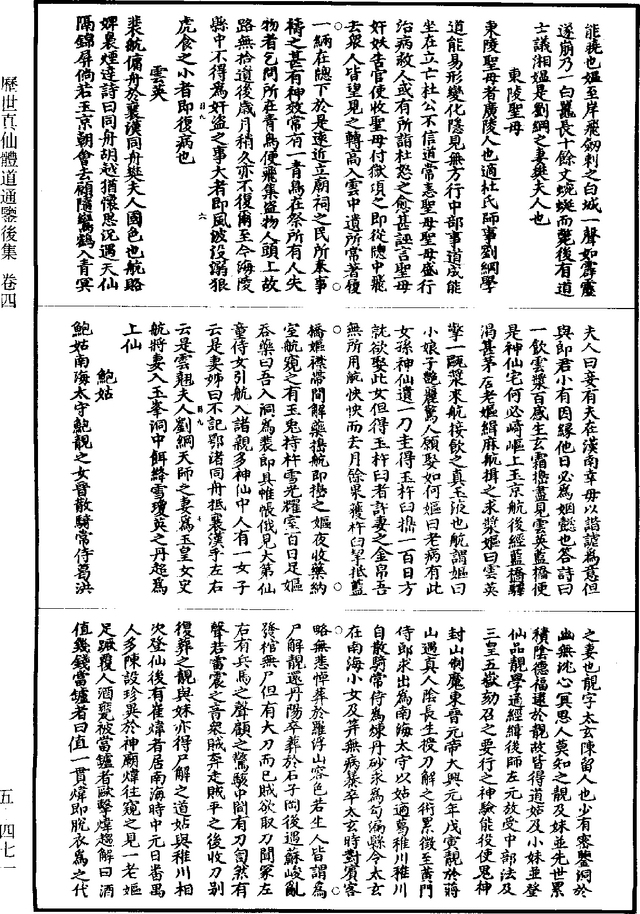 能曉也媼至岸飛劒刺之白城一聲如霹靂
遂崩乃一白鼉長十餘丈蜿蜒而斃後有道
士議湘媼是劉綱之妻樊夫人也
東陵聖母
東陵聖母者廣陵人也適杜氏師事劉綱學
道能易形變化隱見無方行中部事道成能
坐在立亡杜公不信道常恚聖母聖母或行
治病救人或有所詣杜恚之愈甚誣言聖母
奸妖告官使收聖母付獄頃之即從牕中飛
去衆人皆望見之轉高入雲中遺所常著履
一緉在牕下於是遠近立廟祠之民所来事
禱之甚有神效常有一青鳥在祭所有人失
物者乞問所在青鳥便飛集盜物人頭上故
路無拾遺後歲月稍久亦不復爾至今海陵
縣中不得爲奸盜之事大者即風波没溺狼
虎食之小者即復病也
雲英
裴航傭舟於襄漢同舟樊夫人國色也航賂
婢裊煙達詩曰同舟胡越猶懷思況遇天仙
隔錦屏倘若玉京朝會去願隨鸞鶴入青冥
夫人曰妾有夫在漢南幸毋以諧謔為意但
與郎君小有因縁他日必為姻懿也答詩曰
一飲雲漿百感生玄霜擣盡見雲英藍橋便
是神仙宅何必崎嶇上玉京航後經藍橋驛
渴甚茅店老嫗緝麻航揖之求漿嫗曰雲英
擎一甌漿來航接飲之真玉液也航謂嫗曰
小娘子艷麗驚人願娶如何嫗曰老病有此
女孫神仙遺一刀圭得玉杵臼擣一百日方
就欲娶此女但得玉杵臼者許妻之金帛吾
無所用航怏怏而去月餘果獲杵臼挈抵藍
橋嫗襟帶間解藥擣航即擣之嫗夜收藥納
室航窺之有玉兎持杵雪光耀室百日足嫗
吞藥曰吾入洞為裴即具帷帳俄見大第仙
童侍女引航入諸親多神仙中人有一女子
云是妻姊曰不記鄂渚同舟抵襄漢乎左右
云是雲翹夫人劉綱天師之妻爲玉皇女史
航將妻入玉峯洞中餌絳雪瓊英之丹超為
上仙
鮑姑
鮑姑南海太守鮑靚之女晉散騎常侍葛洪
之妻也靚字太玄陳留人也少有密鑒洞於
幽無沈心冥思人莫知之靚及妹並先世累
積陰德福逮於靚故皆得道姑及小妹並登
仙品靚學通經緯後師左元放受中部法及
三皇五嶽劾召之要行之神驗能役使鬼神
封山制魔東晉元帝大興元年戊寅靚於蔣
山遇真人陰長生授刀解之術累徵至黄門
侍郎求出為南海太守以姑適葛稚川稚川
自散騎常侍為煉丹砂求為勾漏縣令太玄
在南海小女及笄無病暴卒太玄時對賓客
略無悲悼葬於羅浮山容色若生人皆謂為
尸解靚還丹陽卒葬於石子岡後遇蘇峻亂
發棺無尸但有大刀而已賊欲取刀聞冢左
右有兵馬之聲顧之驚駭中間有刀訇然有
聲若雷震之音衆賊奔走賊平之後收刀别
復葬之靚與妹亦得尸解之道姑與稚川相
次登仙後有崔煒者居南海時中元日番禺
人多陳設珍異於神廟煒往窺之見一老嫗
足蹶覆人酒甕被當罏者毆擊煒趨解曰酒
值幾錢當罏者曰值一貫煒即脱衣爲之代
歷世真仙體道通鑒後集 卷四
五 四七一